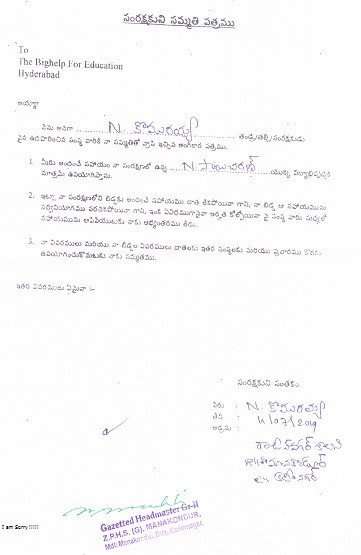 సంరక్షకుని సమ్మతి పత్రము
To
The Bighelp For Education
Hyderabad
అయ్యా
నేను అనగా N. కొమురయ్య తండ్రి/తల్లి/సంరక్షకుడు
పైన ఉదహరించిన సంస్థ వారికి నా సమ్మతితో వ్రాసి ఇచ్చిన అంగీకార పత్రము.
1. మీరు అందించే సహాయం నా సంరక్షణలో ఉన్న N. సాయిచరణ్ యొక్క విద్యాభివృద్ధికి
మాత్రమే ఉపయోగిస్తాను.
2. ఇట్లా నా సంరక్షణలోని బిడ్డకు అందించే సహాయము దాత దొరకపోయినా గాని, నా బిడ్డ ఆ సహాయమును
సద్వినియోగము పరచకపోయినా గాని, ఇంక ఏవిధముగానైనా అర్హత కోల్పోయినా పై సంస్థ వారు మధ్యలో
సహాయమును ఆపివేయుటకు నాకు అభ్యంతరము లేదు.
3. నా వివరములు మరియు నా బిడ్డల వివరములు దాతలకు ఇతర సంస్థలకు మరియు ప్రచారము కొరకు
ఉపయోగించుకొనుటకు నాకు సమ్మతము.
ఇతర వివరములు ఏమైనా :-
సంరక్షకుని సంతకం
పేరు : N. కొమురయ్య
తేది : 11/07/2019
అడ్రసు :
Gazetted Headmaster Gr-II
Z.P.H.S. (G), MANAKONDUR,
Mdl: Manakondur, Dist. Karimnagar.
I am Sorry !!!!!